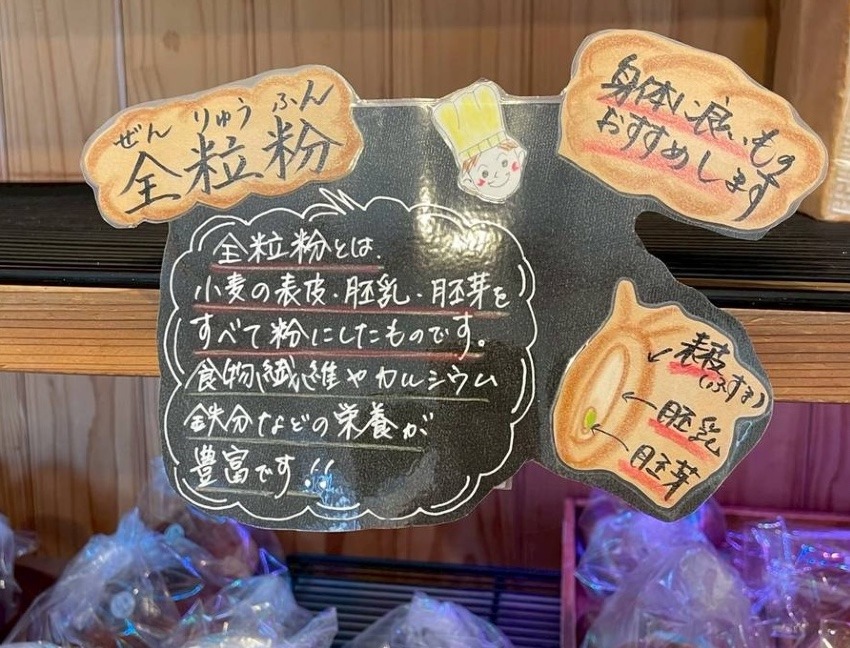 ぜん りゅう ふん
全粒粉
身体に良いもの
おすすめします
全粒粉とは、
小麦の表皮・胚乳・胚芽を
すべて粉にしたものです。
食物繊維やカルシウム
鉄分などの栄養が
豊富です!!
表皮
(ふすま)
胚乳
胚芽